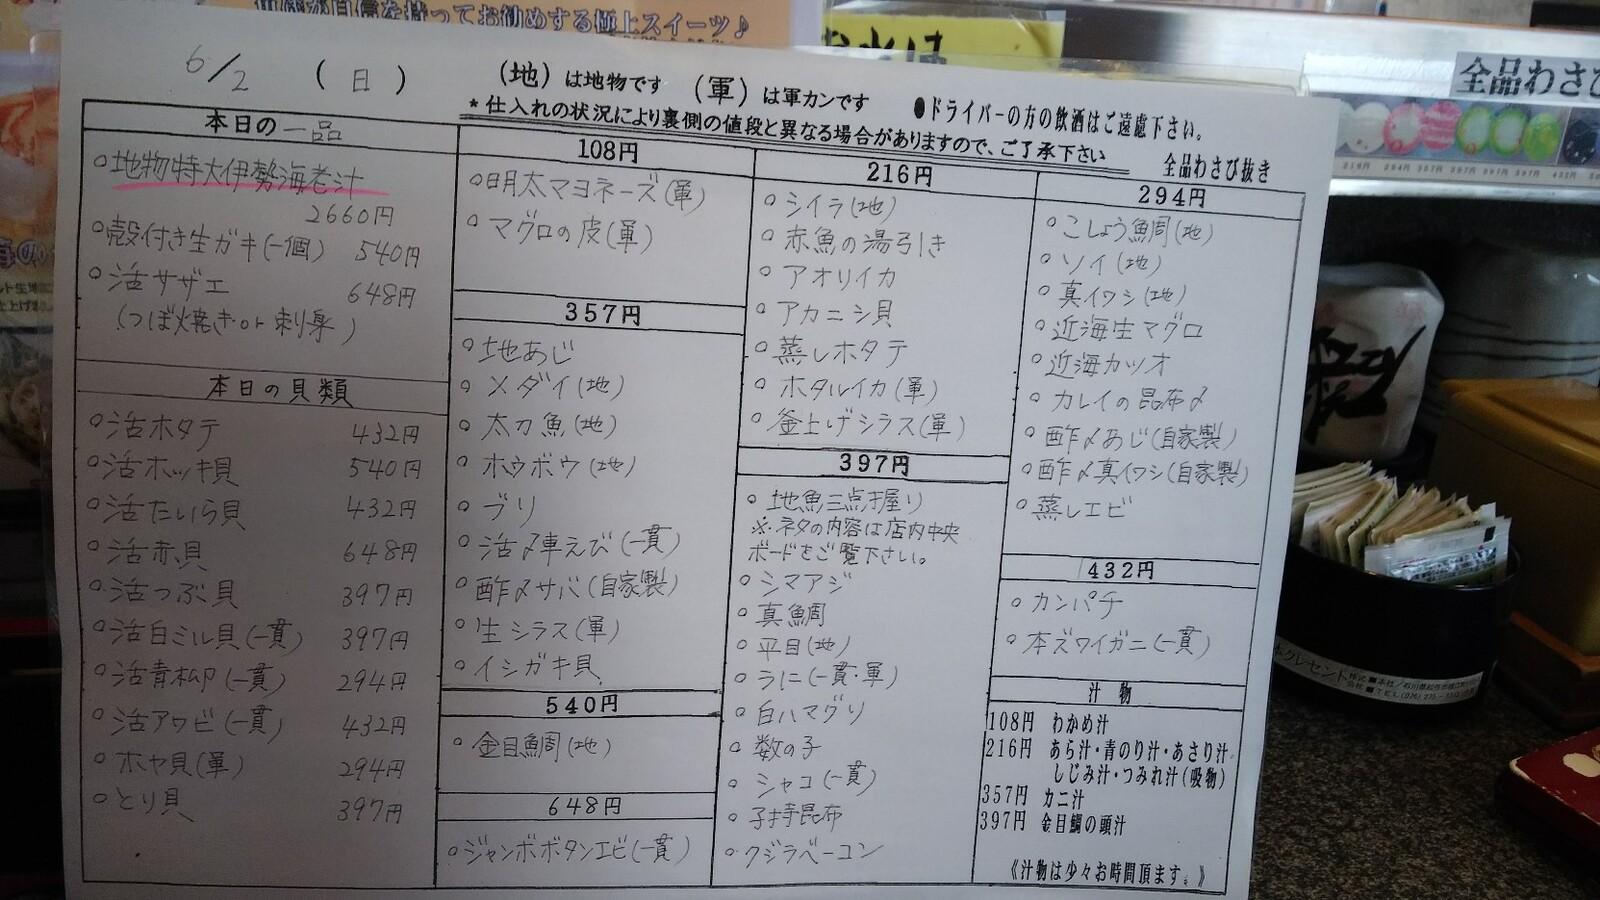 価格が自信を持ってお勧めする極上スイーツ♪
全品わさび
6/2 (日)
(地)は地物です (軍)は軍カンです ●ドライバーの方の飲酒はご遠慮下さい。
*仕入れの状況により裏側の値段と異なる場合がありますので、ご了承下さい 全品わさび抜き
本日の一品
○地物特大伊勢海老汁
2660円
○殻付き生ガキ(一個) 540円
○活サザエ 648円
(つぼ焼き・or 刺身)
本日の貝類
○活ホタテ 432円
○活ホッキ貝 540円
○活たいら貝 432円
○活赤貝 648円
○活つぶ貝 397円
○活白ミル貝(一貫) 397円
○活青柳(一貫) 294円
○活アワビ(一貫) 432円
○ホヤ貝(軍) 294円
○とり貝 397円
108円
○明太マヨネーズ(軍)
○マグロの皮(軍)
357円
○地あじ
○メダイ(地)
○太刀魚(地)
○ホウボウ(地)
○ブリ
○活〆車えび(一貫)
○酢〆サバ(自家製)
○生シラス(軍)
○イシガキ貝
540円
○金目鯛(地)
648円
○ジャンボボタンエビ(一貫)
216円
○シイラ(地)
○赤魚の湯引き
○アオリイカ
○アカニシ貝
○蒸しホタテ
○ホタルイカ(軍)
○釜上げシラス(軍)
397円
○地魚三点握り
※ネタの内容は店内中央
ボードをご覧下さい。
○シマアジ
○真鯛
○平目(地)
○うに(一貫・軍)
○白ハマグリ
○数の子
○シャコ(一貫)
○子持昆布
○クジラベーコン
294円
○こしょう鯛(地)
○ソイ(地)
○真イワシ(地)
○近海生マグロ
○近海カツオ
○カレイの昆布〆
○酢〆あじ(自家製)
○酢〆真イワシ(自家製)
○蒸しエビ
432円
○カンパチ
○本ズワイガニ(一貫)
汁物
108円 わかめ汁
216円 あら汁・青のり汁・あさり汁
しじみ汁・つみれ汁(吸物)
357円 カニ汁
397円 金目鯛の頭汁
《汁物は少々お時間頂ます。》